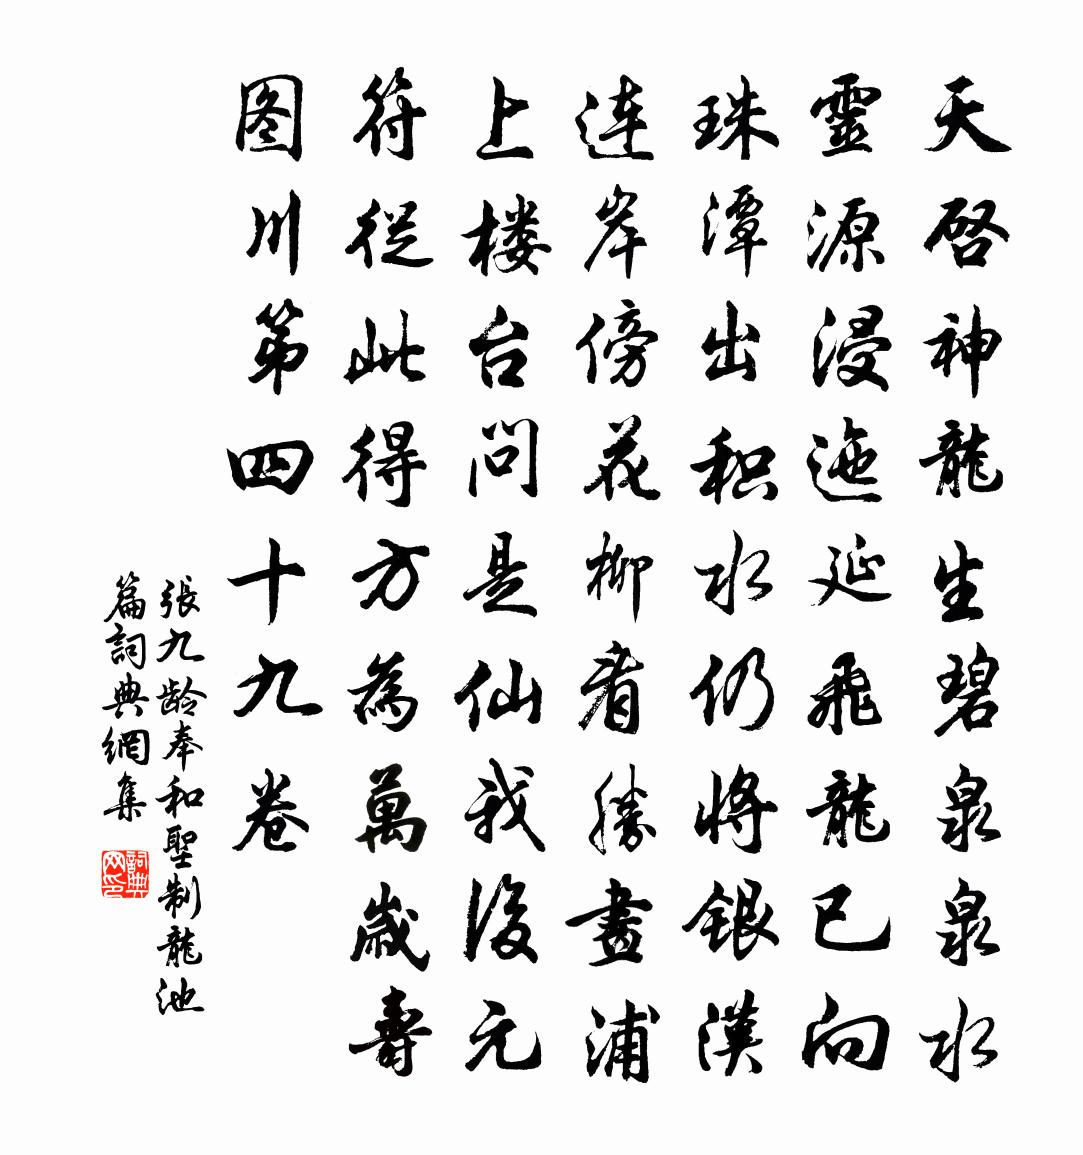 天啓神龍生碧泉泉水
靈源浸迤延飛龍已向
珠潭出积水仍將銀漢
連岸傍花柳看勝畫浦
上楼台問是仙我後元
符從此得方為萬歲壽
图川第四十九卷
張九龄奉和聖制龍池
篇詞典網集
詞典
网印